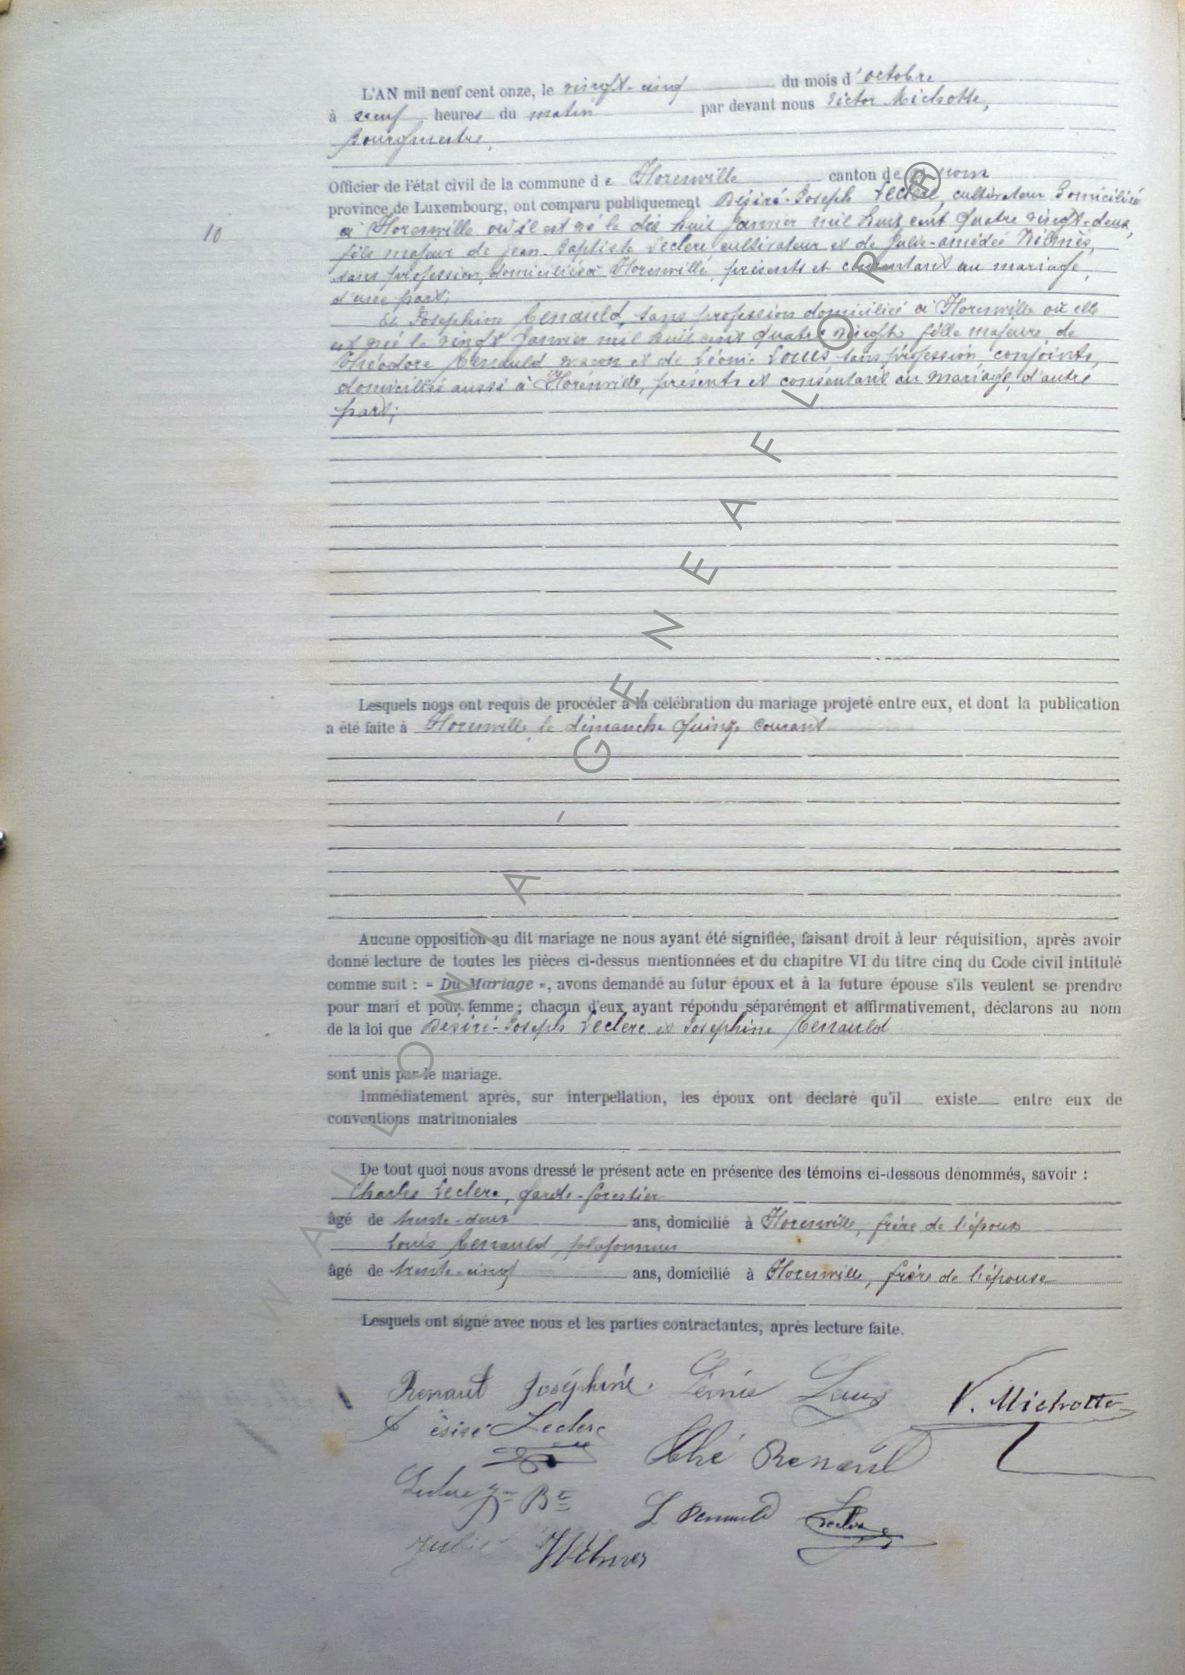 L'AN mil neuf cent onze, le vingt-cinq du mois d'octobre
à neuf heures du matin par devant nous Victor Michotte,
Bourgmestre,
Officier de l'état civil de la commune de Florenville canton de
province de Luxembourg, ont comparu publiquement Désiré-Joseph Leclerc, cultivateur domicilié
10
à Florenville où il est né le dix huit Janvier mil huit cent quatre vingt-deux,
fils majeur de Jean-Baptiste Leclerc cultivateur et de Julie-Amédée
sans profession, domiciliés à Florenville, présents et consentant au mariage,
d'une part;
Et Joséphine Renauld, sans profession domiciliée à Florenville où elle
est née le vingt Janvier mil huit cent quatre vingt, fille majeure de
Théodore Renauld maçon et de Léonie Louis sans profession, conjoints,
domiciliés aussi à Florenville, présents et consentant au mariage, d'autre
part;
Lesquels nous ont requis de procéder à la célébration du mariage projeté entre eux, et dont la publication
a été faite à Florenville le dimanche quinze courant
Aucune opposition au dit mariage ne nous ayant été signifiée, faisant droit à leur réquisition, après avoir
donné lecture de toutes les pièces ci-dessus mentionnées et du chapitre VI du titre cinq du Code civil intitulé
comme suit : « Du Mariage », avons demandé au futur époux et à la future épouse s'ils veulent se prendre
pour mari et pour femme; chacun d'eux ayant répondu séparément et affirmativement, déclarons au nom
de la loi que Désiré-Joseph Leclerc et Joséphine Renauld
sont unis par le mariage.
Immédiatement après, sur interpellation, les époux ont déclaré qu'il existe entre eux de
conventions matrimoniales
De tout quoi nous avons dressé le présent acte en présence des témoins ci-dessous dénommés, savoir :
Charles Leclerc, garde-forestier
âgé de trente-deux ans, domicilié à Florenville, frère de l'époux
Louis Renauld, plafonneur
âgé de trente-cinq ans, domicilié à Florenville, frère de l'épouse
Lesquels ont signé avec nous et les parties contractantes, après lecture faite.
Renaut Joséphine. Léonie Louis V. Michotte
Désiré Leclerc
Thé Renauld
Leclerc Jn Bte
L Renauld Leclerc
Julie
WALLONIA-GENEAFLOR®